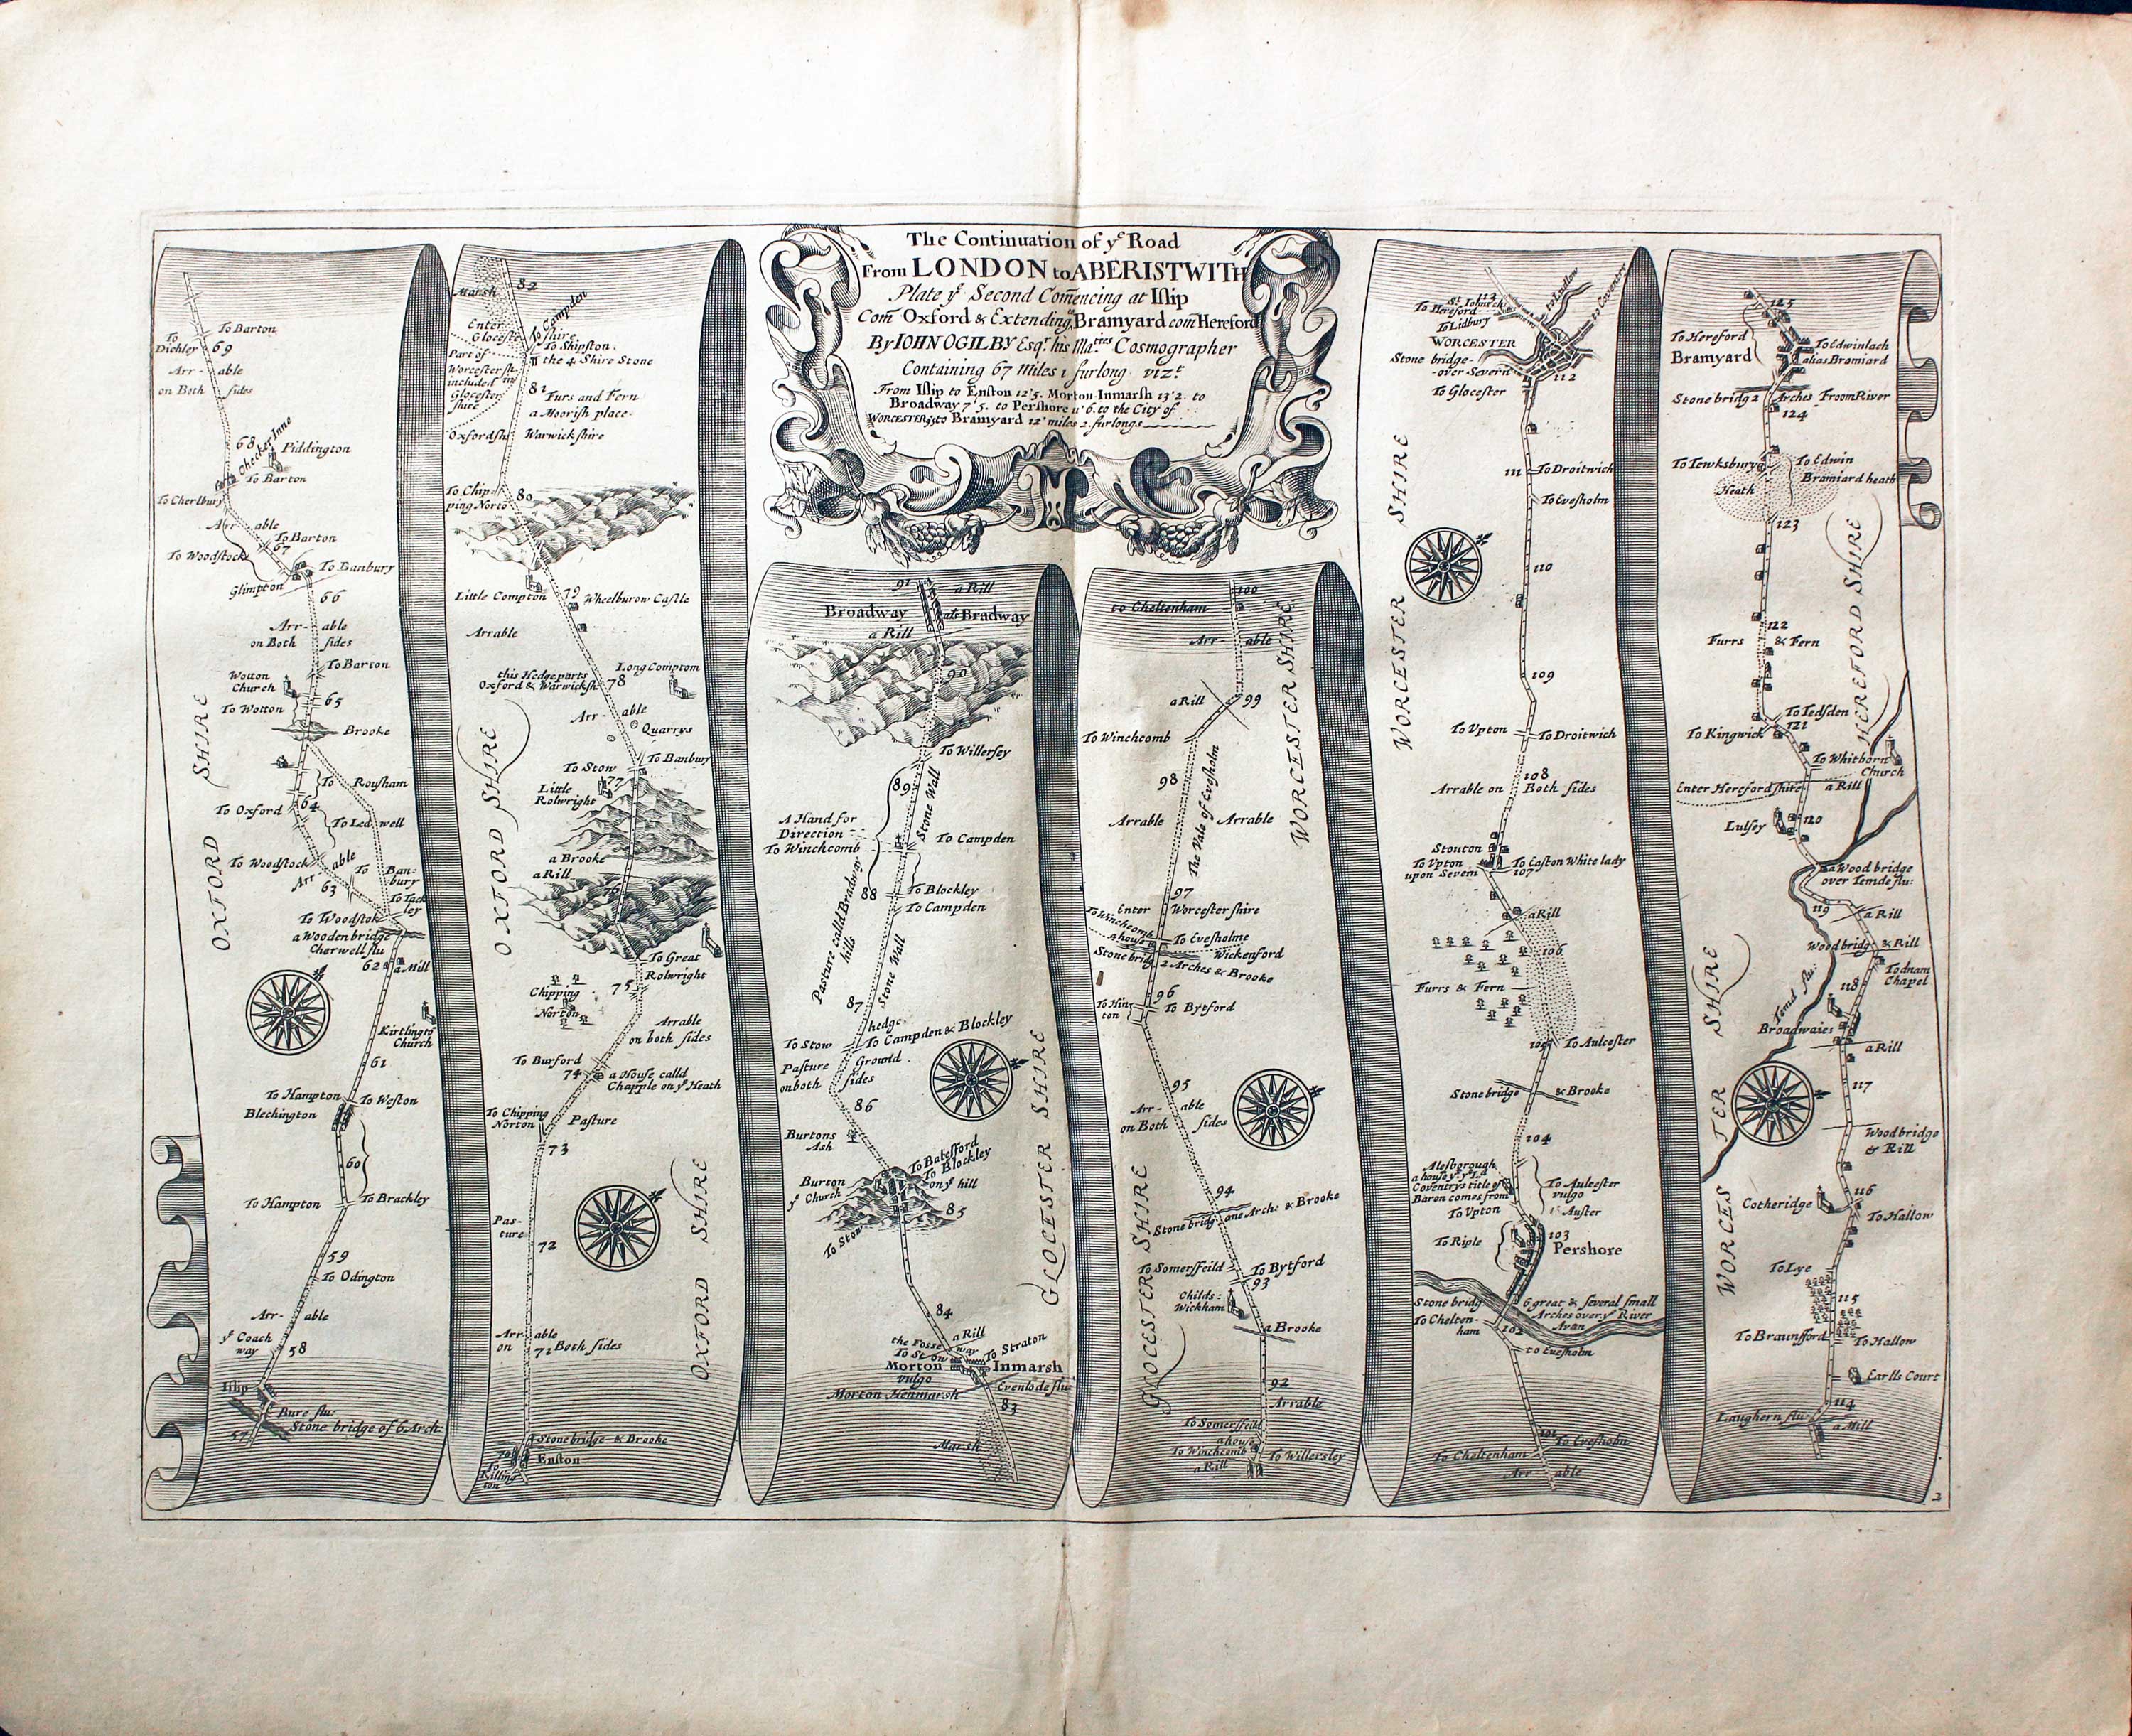 The Continuation of yᵉ Road
From LONDON to ABERISTWITH
Plate yᵉ Second Com̃encing at Iſlip
Com̃ Oxford & Extending to Bramyard com̃ Hereford
By IOHN OGILBY Esqʳ. his Maᵗⁱᵉˢ Cosmographer
Containing 67 Miles 1 furlong. vizᵗ
From Iſlip to Enſton 12'5. Morton Inmarsh 13'2. to
Broadway 7'5. to Perſhore 11'6. to the City of
WORCESTER to Bramyard 12 miles 2. furlongs
To Barton
To
Dichley
69
Arr - able
on Both sides
68
Checker Inne
Piddington
To Barton
To Cherlbury
Arr able
To Barton
67
To Woodſtock
To Banbury
Glimpton
66
Arr- able
on Both sides
To Barton
Wotton
Church
65
To Wotton
Brooke
To Rousham
64
To Oxford
To Ledwell
To Woodſtock
Arr able
63
To Ban-
bury
To Tack
ley
To Woodſtok
a Wooden bridge
Cherwell flu
62
a Mill
Kirtlington
Church
61
To Hampton
To Weſton
Blechington
60
To Hampton
To Brackley
59
To Odington
Arr- able
yᵉ Coach
way
58
Iſlip
Bure flu:
Stone bridge of 6 Arch
57
OXFORD SHIRE
Marsh
82
To Campden
Enter
Gloceſter
shire
To Shipſton.
the 4 Shire Stone
Part of
Worceſterſh.
included in
Gloceſter
shire
81
Furs and Fern
a Moorish place
Oxfordsh:
Warwickshire
To Chip-
ping Norto
80
Little Compton
79
Wheelburow Caſtle
Arrable
this Hedge parts
Oxford & Warwicksh.
78
Long Comptom
Arr- able
Quarrys
To Banbury
To Stow
77
Little
Rolwright
a Brooke
a Rill
76
To Great
Rolwright
75
Chipping
Norton
Arrable
on both sides
To Burford
74
a House calld
Chapple on yᵉ Heath
To Chipping
Norton
Pasture
73
Pas-
ture
72
Arr- able
on 71 Both sides
Stone bridge & Brooke
70
Enſton
To
Killing
ton
OXFORD SHIRE
OXFORD SHIRE
91
a Rill
Broadway
als Bradway
a Rill
90
To Willersey
89
Stone Wall
A Hand for
Direction
To Winchcomb
To Campden
88
To Blockley
To Campden
Pasture calld Bradway
hills
Stone Wall
87
hedge
To Campden & Blockley
To Stow
Pasture Ground
on both sides
86
Burtons
Ash
To Batesford
To Blockley
Burton
yᵉ Church
on yᵉ hill
85
To Stow
84
a Rill
the Fosse way
To Stow
To Straton
Morton Inmarsh
vulgo
Morton Henmarsh
Evenlode flu
83
Marsh
GLOCESTER SHIRE
100
to Cheltenham
Arr- able
a Rill
99
To Winchcomb
98
The Vale of Evesholm
Arrable Arrable
97
Enter Worceſter shire
To Winchcomb
a house
To Evesholme
Wickenford
Stone bridg 2 Arches & Brooke
96
To Hin
ton
To Bytford
95
Arr- able
on Both sides
94
Stone bridg one Arch: & Brooke
To Somersfeild
To Bytford
93
Childs-
Wickham
a Brooke
92
Arrable
To Somersfeild
a house
To Winchcomb
To Willersley
a Rill
GLOCESTER SHIRE
WORCESTER SHIRE
to Ludlow
to Coventre
113
St. Iohns
To Hereford
To Lidbury
WORCESTER
Stone bridge
over Severn
112
To Gloceſter
111
To Droitwich
To Evesholm
110
109
To Upton
To Droitwich
108
Arrable on Both sides
Stouton
To Upton
upon Severn
To Eaſton White lady
107
a Rill
106
Furrs & Fern
105
To Aulceſter
Stone bridge & Brooke
104
Alesborough
a house yᵗ yᵉ Lᵈ
Coventrys title of
Baron comes from
To Aulceſter
vulgo
Auſter
To Upton
103
To Riple
Pershore
Stone bridg 6 great & several small
Arches over yᵉ River
Avan
To Chelten-
ham
102
to Evesholm
101
To Cheltenham
To Evesholm
Arr able
WORCESTER SHIRE
125
To Hereford
Bramyard
To Edwinlach
alias Bromiard
Stone bridg 2 Arches Froom River
124
To Tewksbury
To Edwin
Heath
Bromiard heath
123
122
Furrs & Fern
To Tedsden
121
To Kingwick
To Whitborn
Church
Enter Hereford shire
a Rill
120
Lulsey
a Wood bridge
over Temde flu:
119
a Rill
Wood bridg & Rill
Todnam
Chapel
118
Temd flu:
Broadwaies
a Rill
117
Wood bridge
& Rill
116
Cotheridge
To Hallow
To Lye
115
To Braunsford
To Hallow
Earlls Court
114
Laughern flu
a Mill
HEREFORD SHIRE
WORCESTER SHIRE
2